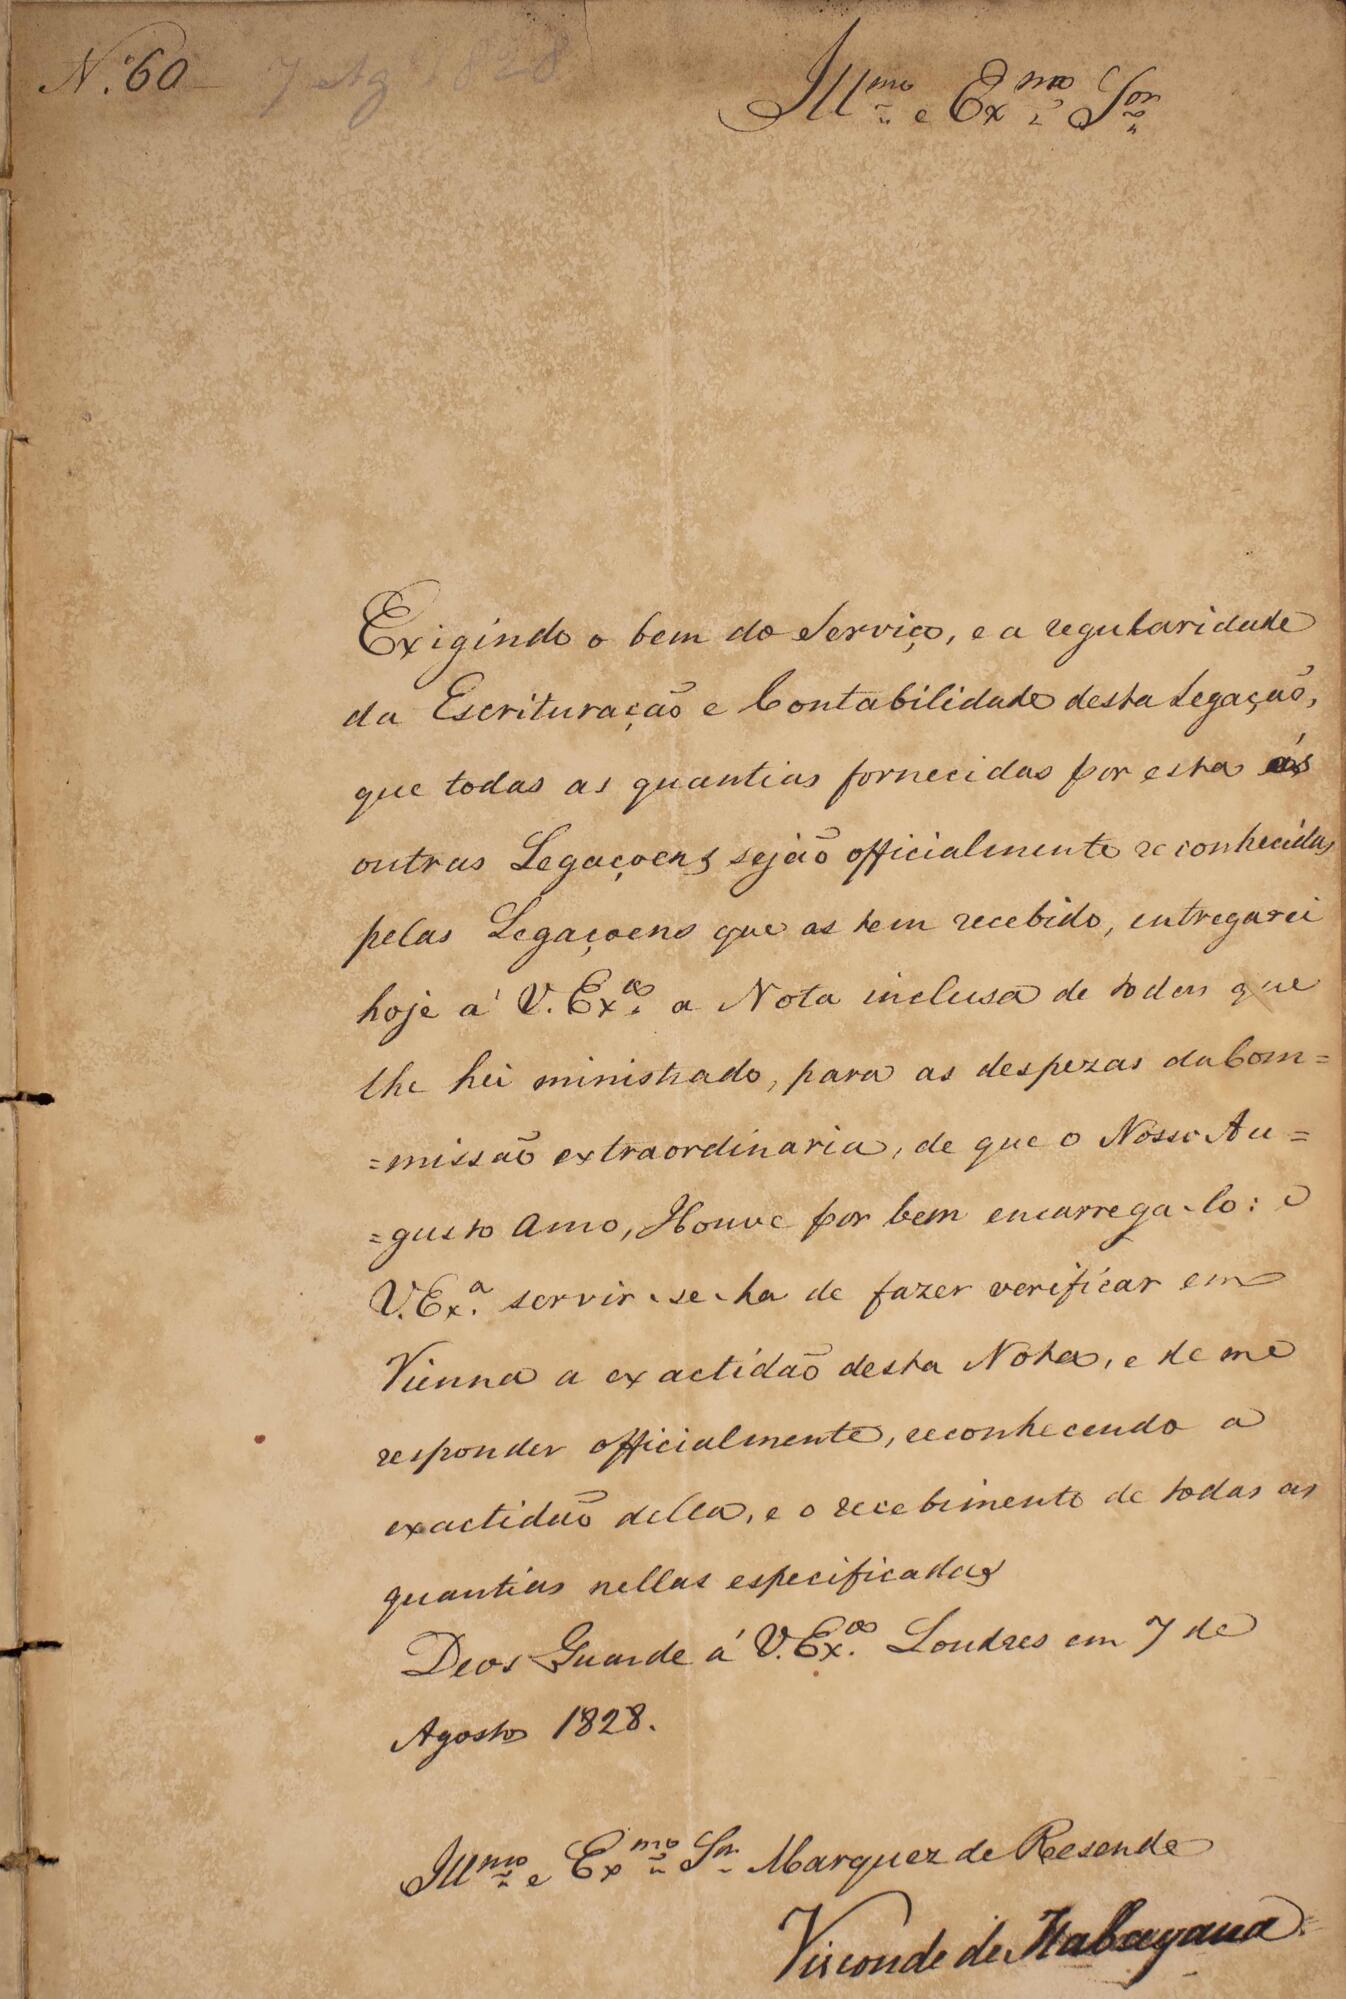 N.º 60
7 Ag 1828
Illmo e Exmo Sor
Exigindo o bem do Serviço, e a regularidade
da Escrituração e Contabilidade desta Legação,
que todas as quantias fornecidas por esta ás
outras Legaçoens sejão officialmente reconhecidas
pelas Legaçoens que as tem recebido, entregarei
hoje á V. Exa. a Nota inclusa de todas que
lhe hei ministrado, para as despezas da Com=
=missão extraordinaria, de que o Nosso Au=
=gusto Amo, Houve por bem encarrega-lo: e
V. Exa. servir-se-ha de fazer verificar em
Vienna a exactidão desta Nota, e de me
responder officialmente, reconhecendo a
exactidão della, e o recebimento de todas as
quantias nellas especificadas
Deos Guarde á V. Exa. Londres em 7 de
Agosto 1828.
Illmo e Exmo Snr Marquez de Resende
Visconde de Itabayana